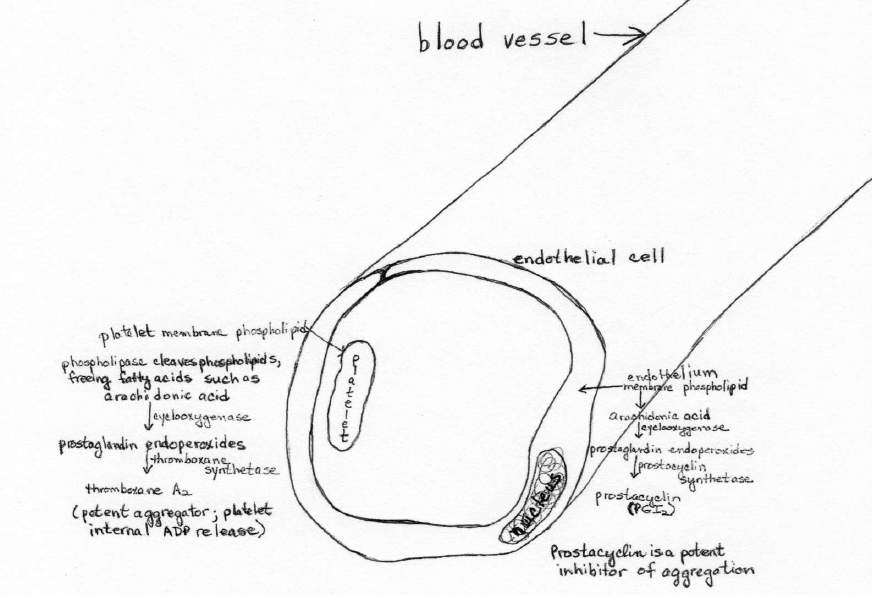 blood vessel
endothelial cell
platelet membrane phospholipid
phospholipase cleaves phospholipids,
freeing fatty acids such as
arachidonic acid
cyclooxygenase
prostaglandin endoperoxides
thromboxane
synthetase
thromboxane A2
(potent aggregator; platelet
internal ADP release)
platelet
nucleus
endothelium
membrane phospholipid
arachidonic acid
cyclooxygenase
prostaglandin endoperoxides
prostacyclin
synthetase
prostacyclin
(PGI2)
Prostacyclin is a potent
inhibitor of aggregation